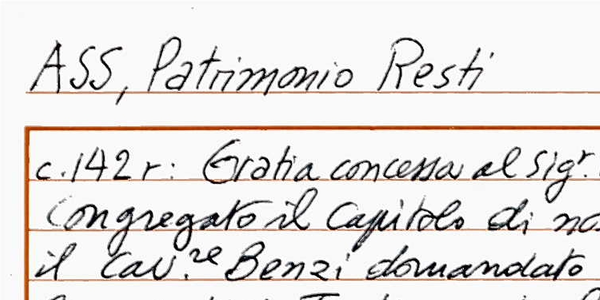 ASS, Patrimonio Resti
c.142r: Gratia concessa al Sigr.
Congregato il Capitolo di
il Cav.re Benzi domandato